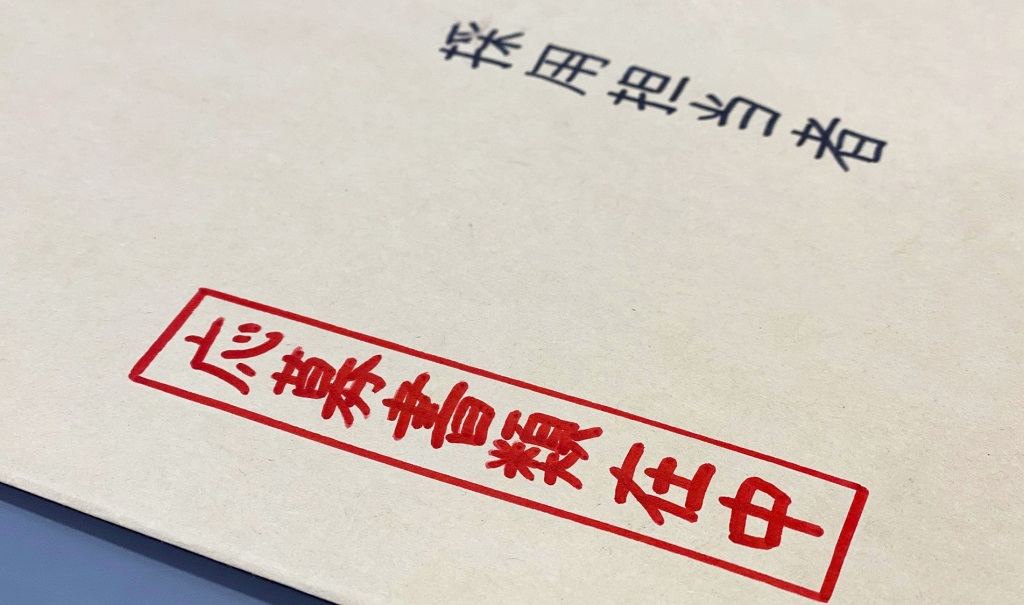 採用担当者
応募書類在中